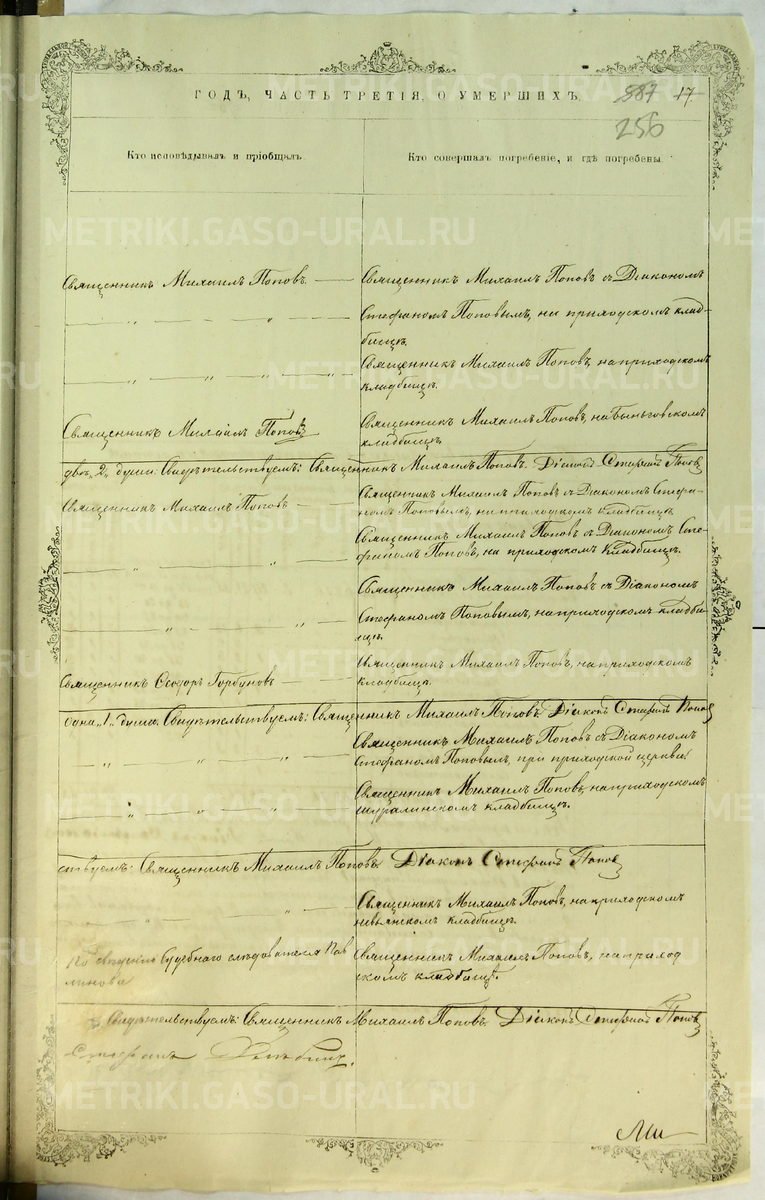 ГОДЪ, ЧАСТЬ ТРЕТІЯ, О УМЕРШИХЪ.
887 17
256
Кто исповѣдывалъ и пріобщалъ.
Кто совершалъ погребеніе, и гдѣ погребены.
Священникъ Михаилъ Поповъ.
Священникъ Михаилъ Поповъ съ Діакономъ
" " " Стефаномъ Поповымъ, на приходскомъ клад-
бищѣ.
Священникъ Михаилъ Поповъ, на приходскомъ
" " " " кладбищѣ.
Священникъ Михаилъ Поповъ
Священникъ Михаилъ Поповъ, на Быньговскомъ
кладбищѣ.
двѣ "2" души. Свидѣтельствуемъ: Священникъ Михаилъ Поповъ. Діаконъ Стефанъ Поповъ
Священникъ Михаилъ Поповъ
Священникъ Михаилъ Поповъ съ Діакономъ Стефа-
номъ Поповымъ, на приходскомъ кладбищѣ.
Священникъ Михаилъ Поповъ съ Діакономъ Сте-
" " " фаномъ Поповъ, на приходскомъ кладбищѣ.
Священникъ Михаилъ Поповъ съ Діакономъ
" " Стефаномъ Поповымъ, на приходскомъ кладби-
щѣ.
Священникъ Михаилъ Поповъ, на приходскомъ
Священникъ Ѳеодоръ Горбуновъ
кладбищѣ.
одна "1" душа. Свидѣтельствуемъ: Священникъ Михаилъ Поповъ. Діаконъ Стефанъ Поповъ
Священникъ Михаилъ Поповъ съ Діакономъ
" " " Стефаномъ Поповымъ, при приходской церкви.
Священникъ Михаилъ Поповъ, на приходскомъ
" " " шуралинскомъ кладбищѣ.
ствуемъ: Священникъ Михаилъ Поповъ. Діаконъ Стефанъ Поповъ
Священникъ Михаилъ Поповъ, на приходскомъ
" " невьянскомъ кладбищѣ.
Судебнаго слѣдователя Пав
линова
Священникъ Михаилъ Поповъ, на приход
скомъ кладбищѣ.
Свидѣтельствуемъ: Священникъ Михаилъ Поповъ. Діаконъ Стефанъ Поповъ
METRIKI.GASO-URAL.RU